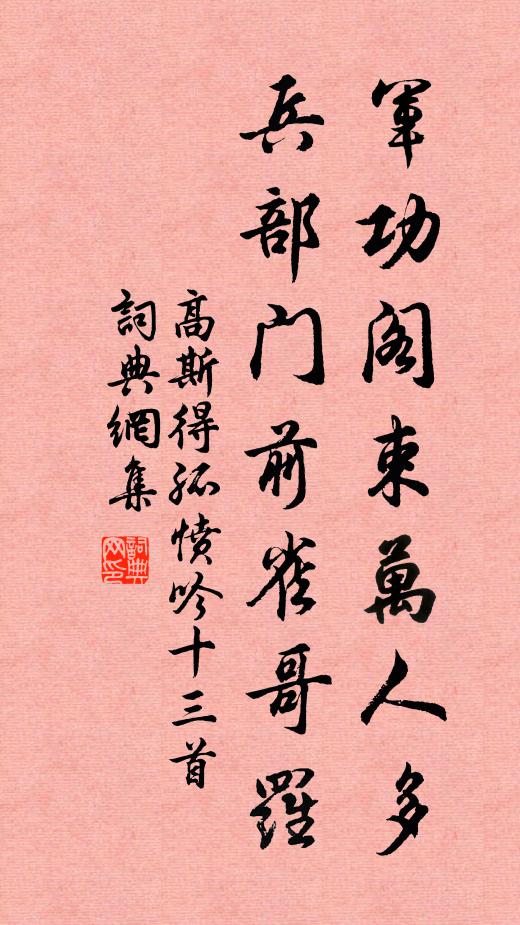 軍功閣束萬人多
兵部門前雀哥羅
高斯得孤憤吟十三首
詞典網集
詞典网印